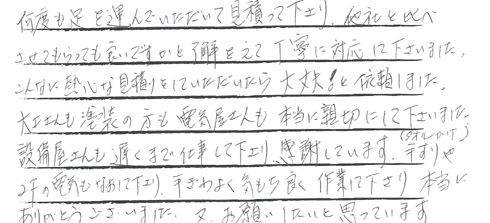 何度も足を運んでいただいて見積って下さり、他社と比べ
させてもらっても良いですかと了解をえて丁寧に対応して下さいました。
こんなに熱心な見積りをしていただいたら大丈夫!と依頼しました。
大工さんも塗装の方も電気屋さんも本当に親切にして下さいました
設備屋さんも遅くまで仕事して下さり、感謝しています。手すりや
(タオルかけ)
2Fの電気もなおして下さり、手ぎわよく気もち良く作業して下さり本当に
ありがとうございました。又、お願いしたいと思っています